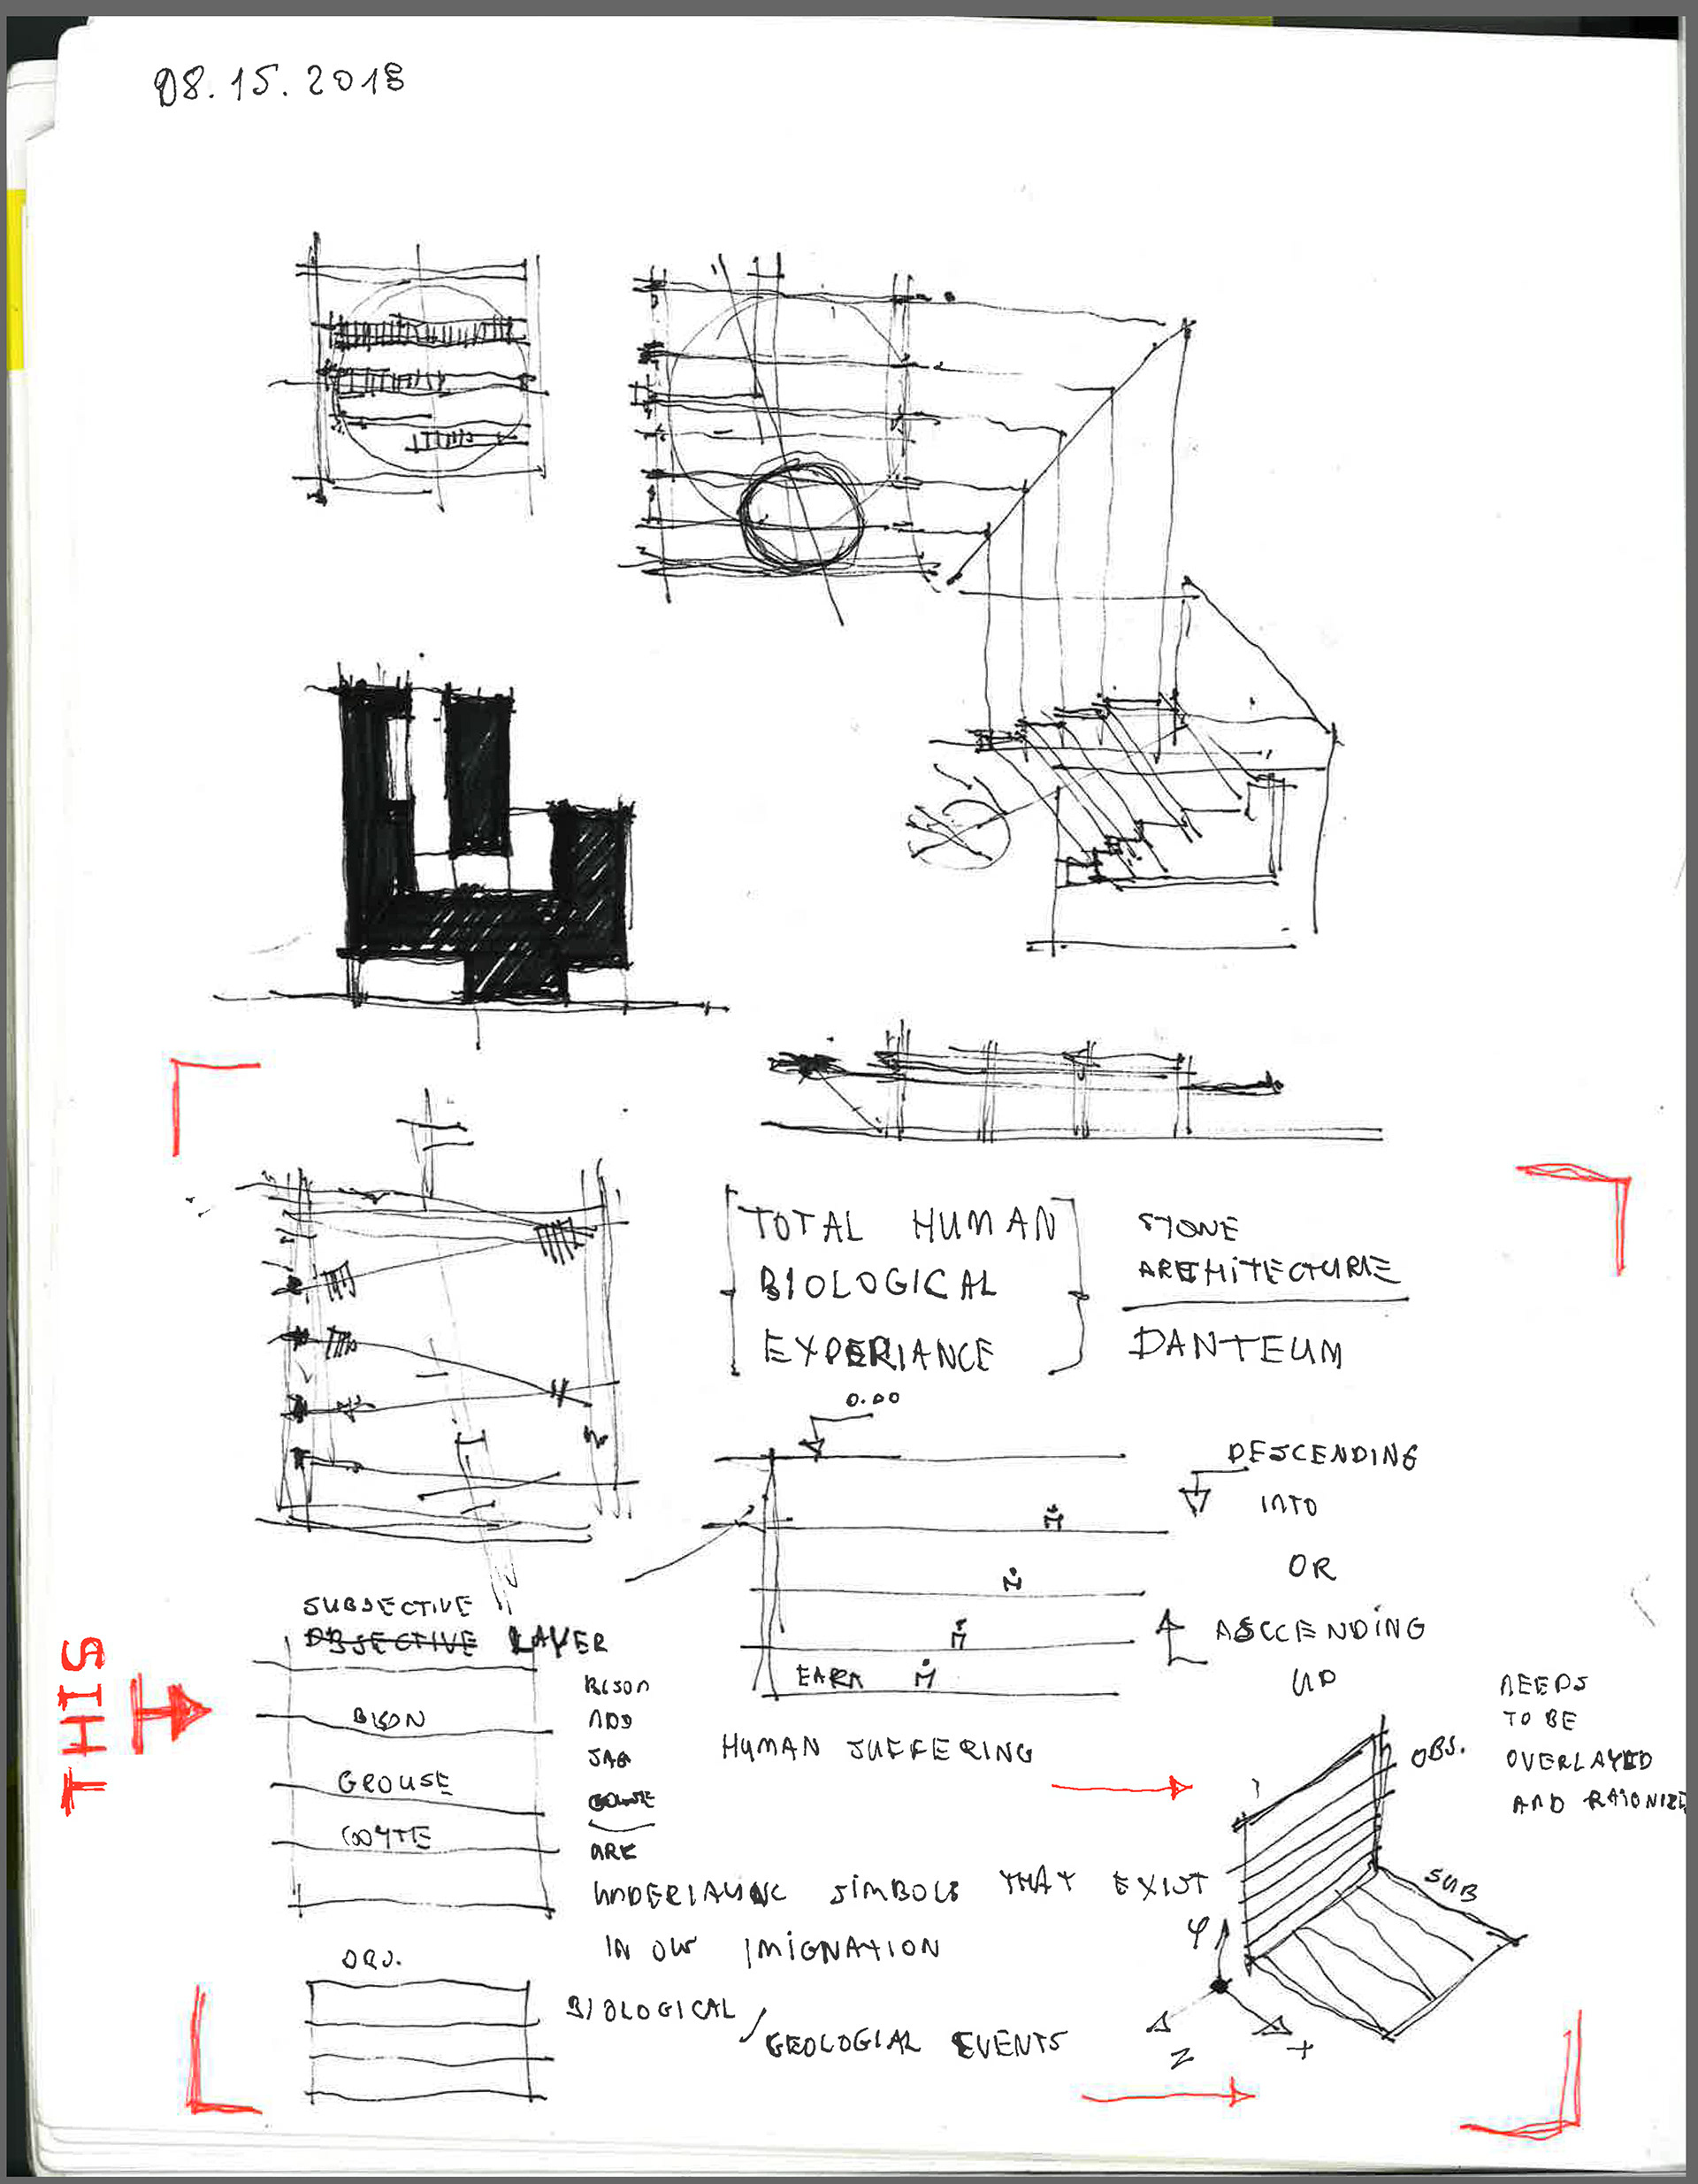 08.15.2018
TOTAL HUMAN
BIOLOGICAL
EXPERIANCE
STONE
ARCHITECTURE
DANTEUM
0.00
DESCENDING
INTO
OR
ASCCENDING
UP
SUBJECTIVE
OBJECTIVE LAYER
BISON
GROUSE
BISON
JAG
ARK
THIS
HUMAN SUFFERING
NEEDS
TO BE
OVERLAYED
AND
OBS.
SUB
SIMBOLS THAT EXIST
IN OUR IMIGNATION
OBJ.
BIOLOGICAL /
GEOLOGIAL EVENTS
Y
Z
X